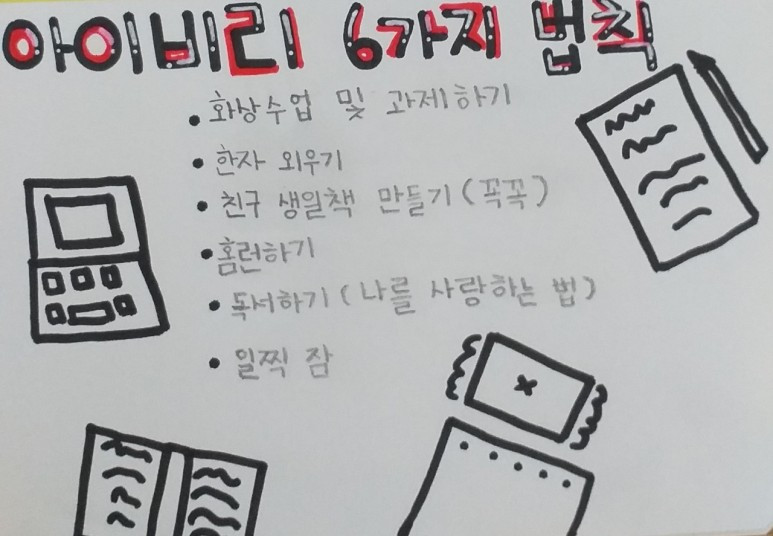 아이비리 6가지 법칙
화상수업 및 과제하기
한자 외우기
친구 생일책 만들기 (꼭꼭)
홈런하기
독서하기 (나를 사랑하는 법)
일찍 잠